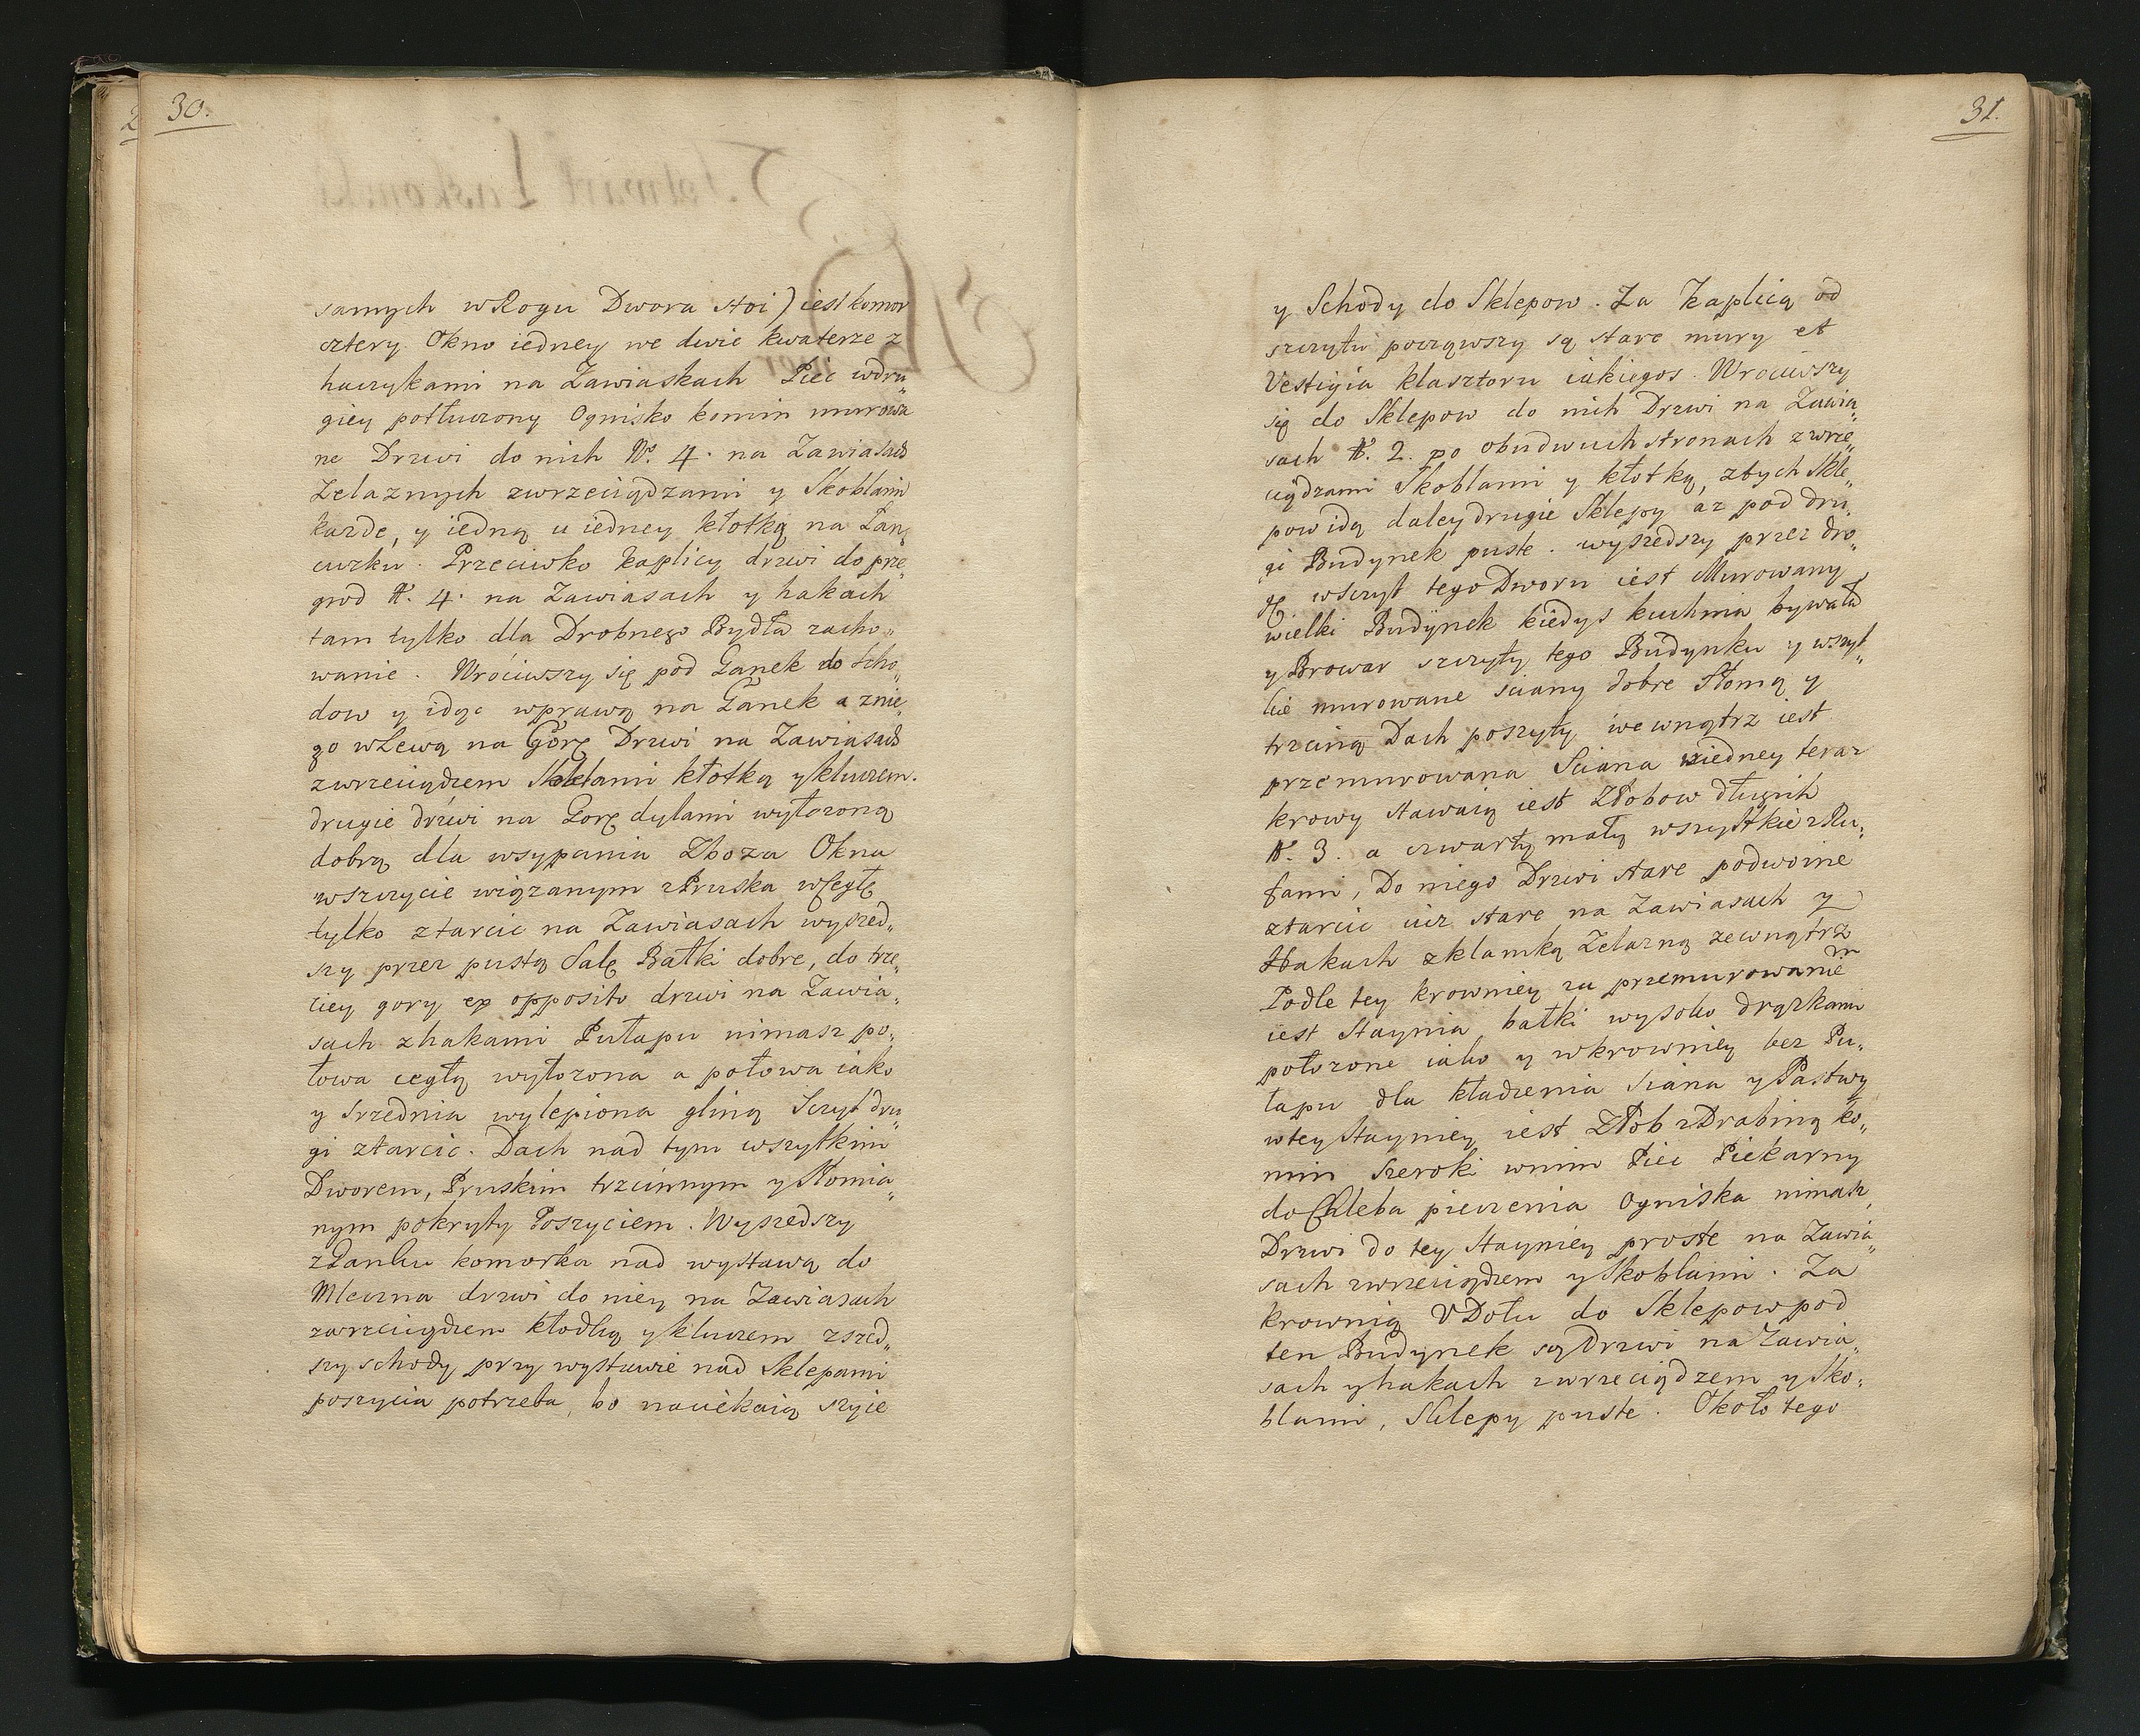 30.
samych w Rogu Dwora stoi) iest komor
cztery Okno iedney we dwie kwaterze z
haczykami na Zawiaskach Piec wdru„
giey potłuczony Ognisko komin murowa
ne Drzwi do nich N. 4. na Zawiasach
Zelaznych zwrzeciądzami y Skoblami
kazde, y iedną u iedney kłotką na Łan„
cuzku. Przeciwko Kaplicy drzwi do prze„
grod N. 4. na Zawiasach y hakach
tam tylko dla Drobnego Bydła zacho„
wanie. Wróciwszy się pod Ganek do scho„
dow y idąc wprawą na Ganek a znie„
go wLewą na Gorę Drzwi na Zawiasach
zwrzeciądzem Skoblami kłotką y kluczem.
drugie drzwi na Gorę dylami wyłozoną
dobrą dla wsypania Zboza Okna
wszczycie wiązanym zPruska wCegłę
tylko ztarcic na Zawiasach wyszed„
szy przez pustą Salę Bałki dobre, do trze„
ciey gory ex opposito drzwi na Zawia„
sach zhakami Pułapu nimasz po„
łowa cegłą wyłozona a połowa iako
y Srzednia wylepiona gliną Sczyt dru„
gi ztarcic. Dach nad tym wszytkim
Dworem, Pruskim trzcinnym y Słomia„
nym pokryty Poszyciem. Wyszedszy
zGanku komorka nad wystawą do
Mleczna drzwi do niey na Zawiasach
zwrzeciądzem kłodką y kluczem zszed„
szy schody przy wystawie nad Sklepami
poszycia potrzeba, bo naciekaią szyie
31.
y Schody do Sklepow. Za Kaplicą od
szczytu począwszy są stare mury et
Vestigia klasztoru iakiegos. Wrociwszy
się do Sklepow do nich Drzwi na Zawia„
sach N. 2. po obudwuch stronach zwrze„
ciądzami Skoblami y kłotką, ztych Skle„
pow idą daley drugie Sklepy az pod dru„
gi Budynek puste. wyszedszy przez dro„
gę wSczyt tego Dworu iest Murowany
wielki Budynek kiedys kuchnia bywała
y Browar szczyty tego Budynku y wszyt„
kie murowane sciany dobre Słomą y
trzciną Dach poszyty wewnątrz iest
przemurowana Sciana wiedney teraz
krowy stawaią iest Złobow długich
N. 3. a czwarty mały wszystkie zRu„
fami, Do niego Drzwi stare podwoine
ztarcic iuz stare na Zawiasach y
Hakach zklamką Zelazną zewnątrz
Podle tey krowniey za przemurowaniem
iest Staynia bałki wysoko drązkami
połozone iako y wkrowniey bez Pu„
łapu dla kładzenia Siana y Pastwy
wtey Stayniey iest Złob zDrabiną ko„
min Szeroki wnim Piec Piekarny
do Chleba pieczenia Ogniska nimasz,
Drzwi do tey Stayniey proste na Zawia„
sach zwrzeciądzem y Skoblami. Za
krownią VDołu do Sklepow pod
ten Budynek są Drzwi na Zawia„
sach y hakach zwrzeciądzem y Sko„
blami, Sklepy puste. Około tego